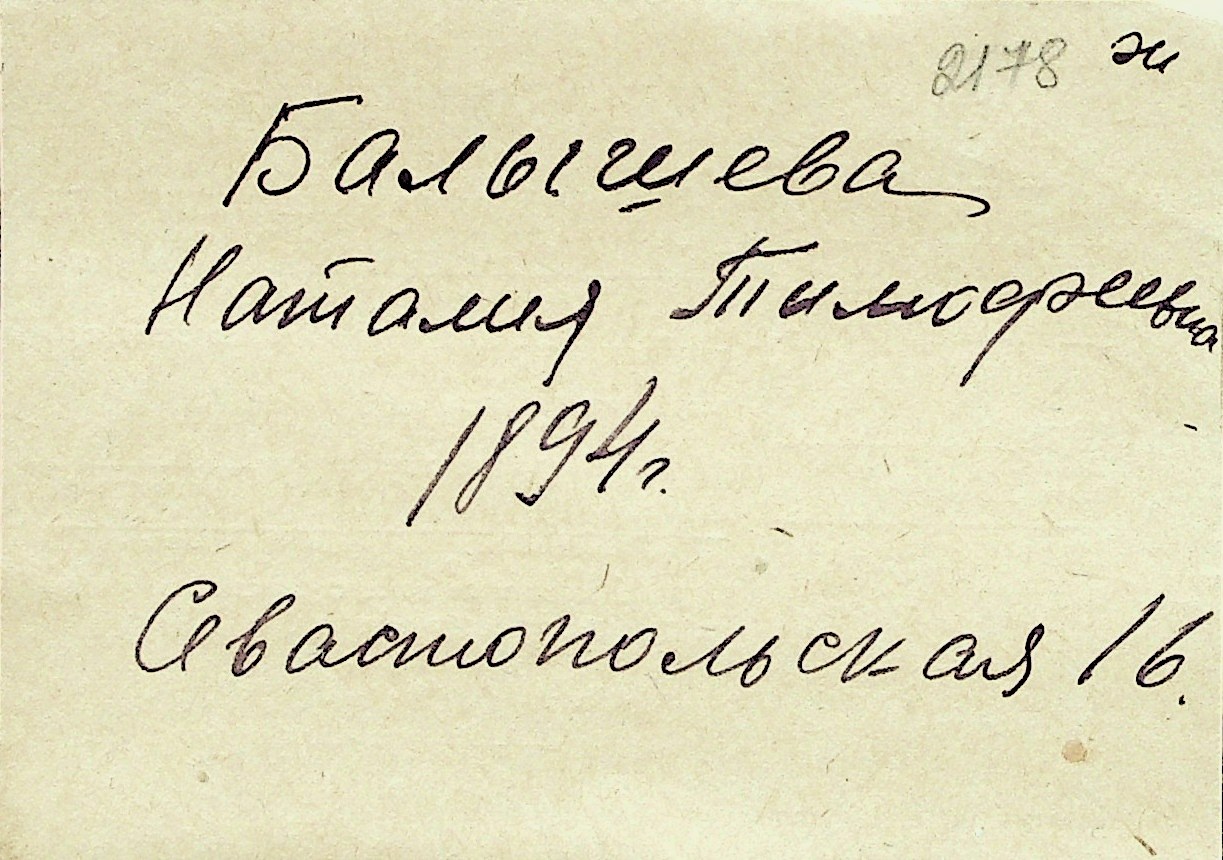 2178 ж
Балышева
Наталия Тимофеевна
1894 г.
Севастопольская 16.